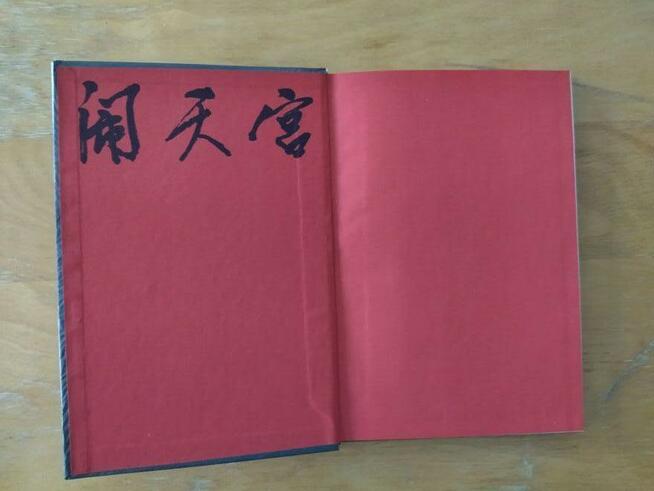 闹天宫